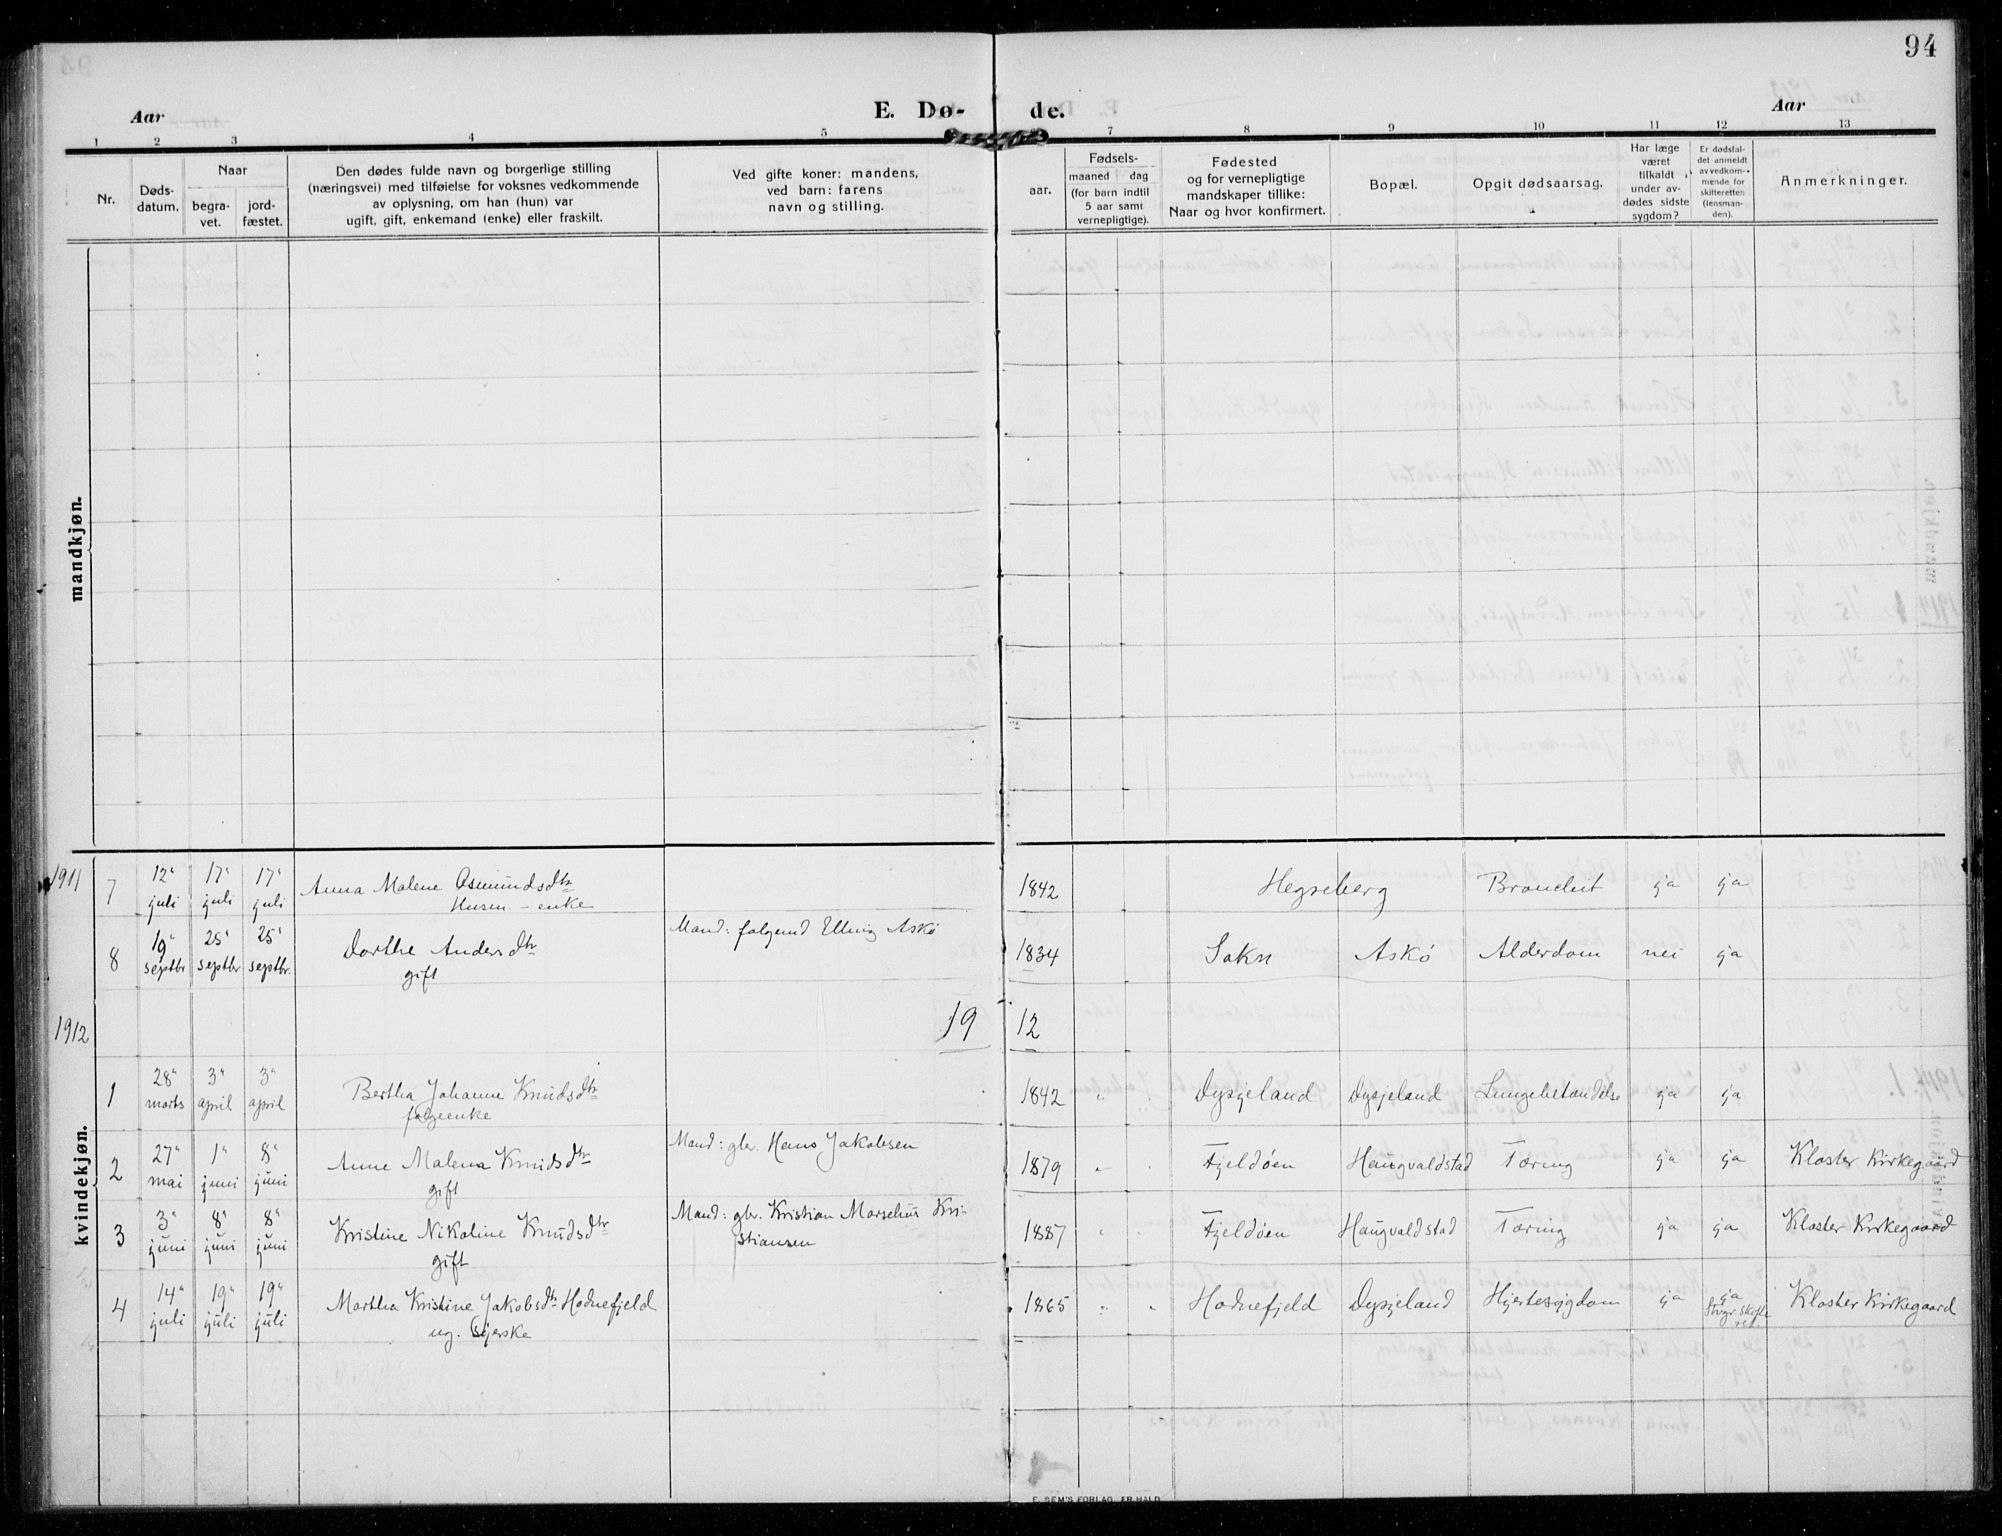 94
Aar E. Dø- de. Aar
1 2 3 4 5 7 8 9 10 11 12 13
Nr.
Døds-
datum.
Naar
begra-
vet.
jord-
fæstet.
Den dødes fulde navn og borgerlige stilling
(næringsvei) med tilføielse for voksnes vedkommende
av oplysning, om han (hun) var
ugift, gift, enkemand (enke) eller fraskilt.
Ved gifte koner: mandens,
ved barn: farens
navn og stilling.
aar.
Fødsels-
maaned dag
(for barn indtil
5 aar samt
vernepligtige).
Fødested
og for vernepligtige
mandskaper tillike:
Naar og hvor konfirmert.
Bopæl.
Opgit dødsaarsag.
Har læge
været
tilkaldt
under av-
dødes sidste
sygdom?
Er dødsfal-
det anmeldt
av vedkom-
mende for
skifteretten
(lensman-
den).
Anmerkninger.
mandkjøn.
kvindekjøn.
1911 7 12" juli 17" juli 17" juli Anna Malene Osmundsdtr 1842 Hegseberg ja ja
Husen - enke
8 19" septbr 25" septbr 25" septbr. Dorthe Andersdtr Mand: folgemd Elling Askø 1834 Sokn Askø Alderdom nei ja
gift
1912 19 12
1 28" marts 3" april 3" april Bertha Johanne Knudsdtr 1842 " " Dysjeland Dysjeland Lungebetændelse ja ja
folgeenke
2 27" mai 1" juni 8" juni Anne Malena Knudsdtr Mand: gbr. Hans Jakobsen 1879 " " Fjeldøen Haugvaldstad Tæring ja ja Kloster Kirkegaard
gift
3 3" juni 8" juni 8" juni Kristine Nikoline Knudsdtr Mand: gbr. Kristian Marselius Kri- 1887 " " Fjeldøen Haugvaldstad Tæring ja ja Kloster Kirkegaard
gift stiansen
4 14" juli 19" juli 19" juli Martha Kristine Jakobsdtr Hodnefjeld 1865 " " Hodnefjeld Dysjeland Hjertesygdom ja ja Kloster Kirkegaard
ug. syerske
E. SEM'S FORLAG, FR.HALD